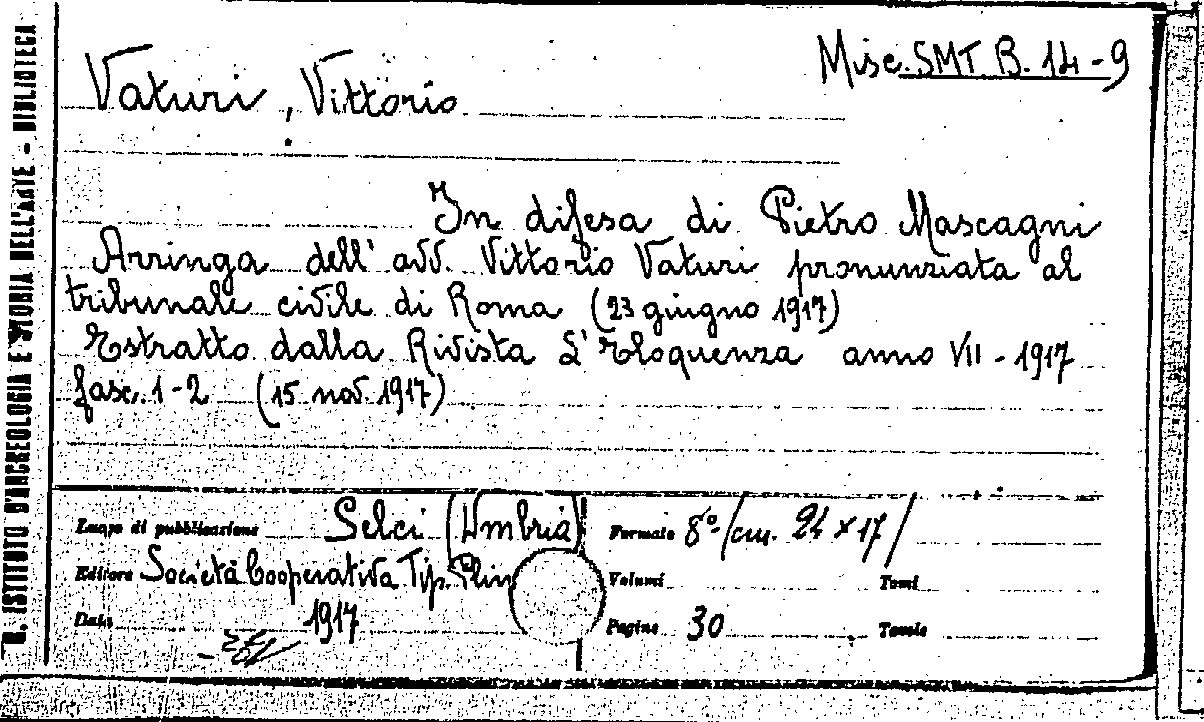 Misc. SMT B. 14-9
Vaturi, Vittorio
In difesa di Pietro Mascagni
Arringa dell' avv. Vittorio Vaturi pronunziata al
tribunale civile di Roma (23 giugno 1917)
Estratto dalla Rivista L'Eloquenza anno VII - 1917
fasc. 1-2 (15 nov. 1917)
Luogo di pubblicazione Selci (Umbria)
Formato 8°/cm. 24 x 17/
Editore Società Cooperativa Tip. Plin
Volumi Tomi
Data 1917
Pagine 30 Tavole
R. ISTITUTO D'ARCHEOLOGIA E STORIA DELL'ARTE - BIBLIOTECA